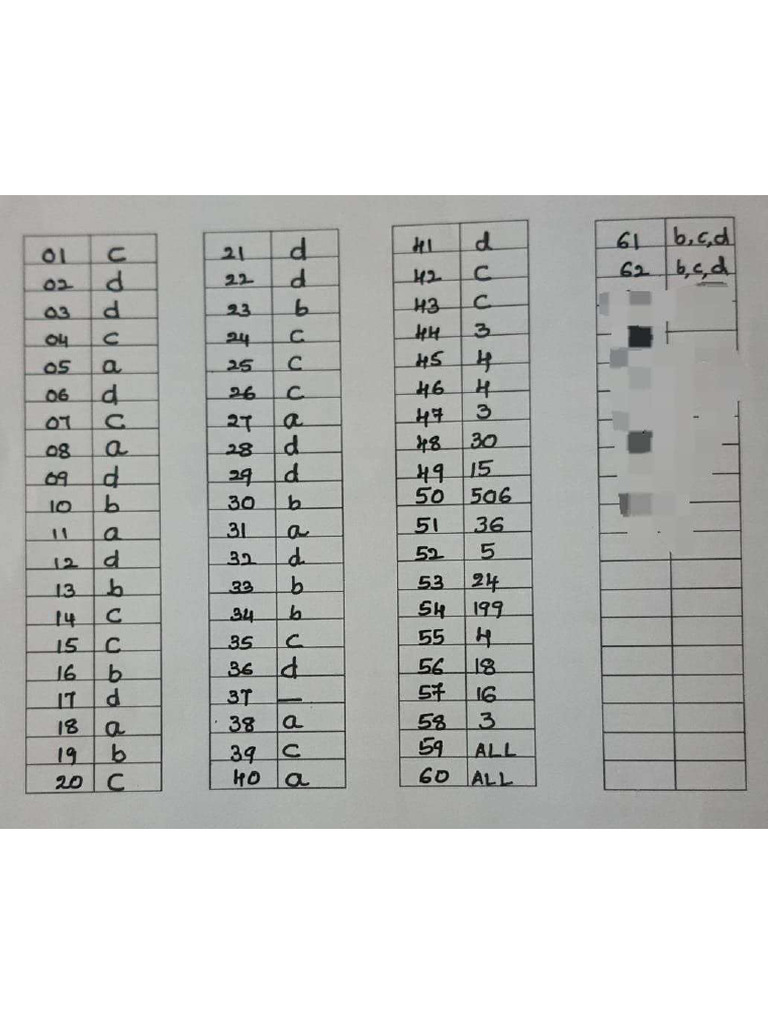 01 c
02 d
03 d
04 c
05 a
06 d
07 c
08 a
09 d
10 b
11 a
12 d
13 b
14 c
15 c
16 b
17 d
18 a
19 b
20 c
21 d
22 d
23 b
24 c
25 c
26 c
27 a
28 d
29 d
30 b
31 a
32 d
33 b
34 b
35 c
36 d
37 —
38 a
39 c
40 a
41 d
42 c
43 c
44 3
45 4
46 4
47 3
48 30
49 15
50 506
51 36
52 5
53 24
54 199
55 4
56 18
57 16
58 3
59 ALL
60 ALL
61 b,c,d
62 b,c,d